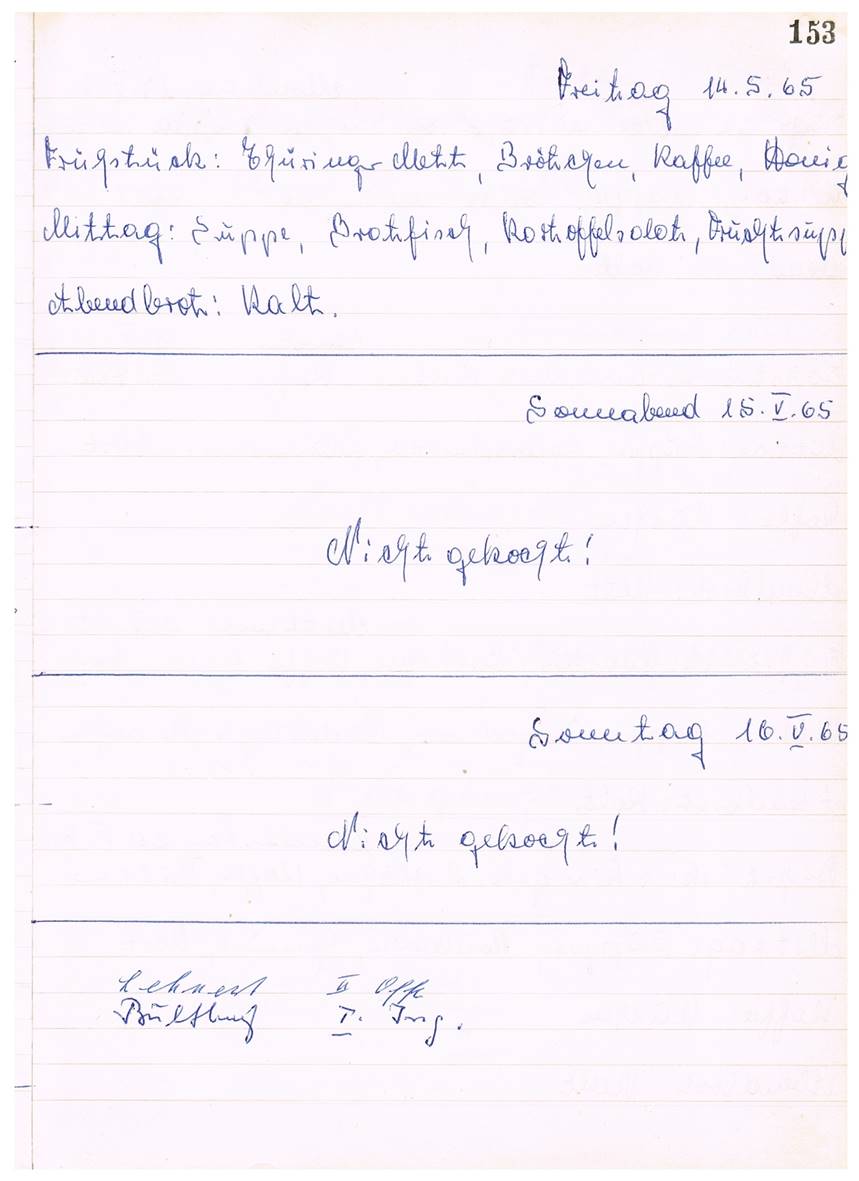 153
Freitag 14.5.65
Frühstück: Thüringer Mett, Brötchen, Kaffee, Honig
Mittag: Suppe, Bratfisch, Kartoffelsalat, Fruchtsupp
Abendbrot: Kalt.
Sonnabend 15.V.65
Nicht gekocht!
Sonntag 16.V.65
Nicht gekocht!
Lehnert II Off
I. Ing.